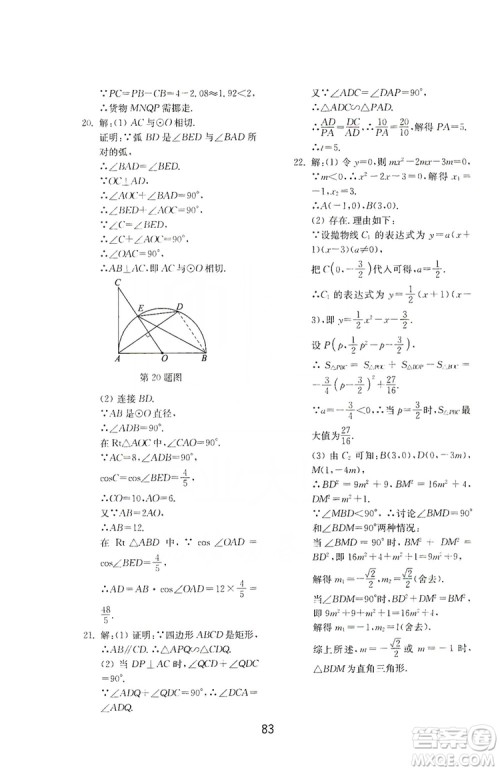 ∵PC=PB-CB=4-2.08≈1.92<2.
∴货物 MNQP 需挪走.
20. 解:(1) AC 与⊙O 相切.
证明:∵弧 BD 是∠BED 与∠BAD 所
对的弧,
∴∠BAD=∠BED.
∵OC⊥AD,
∴∠AOC+∠BAD=90°,
∴∠BED+∠AOC=90°.
∴∠C+∠AOC=90°,
∴∠OAC=90°,
∴AB⊥AC,即 AC 与⊙O 相切.
C
E
D
A
O
B
第 20 题图
(2) 连接 BD.
∵AB 是⊙O 直径,
∴∠ADB=90°.
在 Rt△AOC 中,∠CAO=90°,
∵∠C=∠BED,
cosC=cos∠BED=4/5,
∴CO=10, AC=8.
又∵AB=2AO,
∴AB=12.
在 Rt △ABD 中, ∵cos∠OAD =
cos∠BED=4/5,
∴AD = AB · cos∠OAD = 12 × 4/5 =
48/5.
21. 解:(1) 证明:∵四边形 ABCD 是矩形,
∴AB∥CD. ∴△APQ∽△CDQ.
(2) 当 DP⊥AC 时,∠QCD+∠QDC
=90°.
∵∠ADQ+∠QDC=90°,
∴∠DCA=∠ADP.
∵∠ADC=∠DAP=90°,
∴△ADC∽△PAD.
∴AD/PA=DC/AD, ∴10/PA=20/10, 解得 PA=5.
∴t=5.
22. 解:(1) 令 y=0,则 mx²-2mx-3m=0.
∵m<0,∴x²-2x-3=0,解得 x₁=
-1, x₂=3.
∴A(-1,0), B(3,0).
(2) 存在. 理由如下:
∵设抛物线 C₁ 的表达式为 y=a(x+
1)(x-3)(a≠0),
把 C(0,-3/2)代入可得,a=1/2.
∴C₁ 的表达式为:y=1/2(x+1)(x-
3),即 y=1/2x²-x-3/2.
设 P(p,1/2p²-p-3/2),
∴S△PBC = S△POC + S△BOP - S△BOC =
-3/4(p-3/2)²+27/16.
∵a=-3/4<0,∴当 p=3/2时,S△PBC
最大值为27/16.
(3) 由 C₂ 可知:B(3,0),D(0,-3m),
M(1,-4m),
∴BD²=9m²+9, BM²=16m²+4,
DM²=m²+1.
∵∠MBD<90°,∴讨论∠BMD=90°
和∠BDM=90°两种情况:
当 ∠BMD=90° 时, BM² + DM² =
BD²,即 16m²+4+m²+1=9m²+9,
解得 m₁=-√2/2, m₂=√2/2(舍去).
当 ∠BDM=90° 时, BD² + DM² =
BM²,即 9m²+9+m²+1=16m²+4,
解得 m₁=-1, m₂=1(舍去).
综上所述, m=-√2/2 或 m=-1 时,
△BDM 为直角三角形.
83